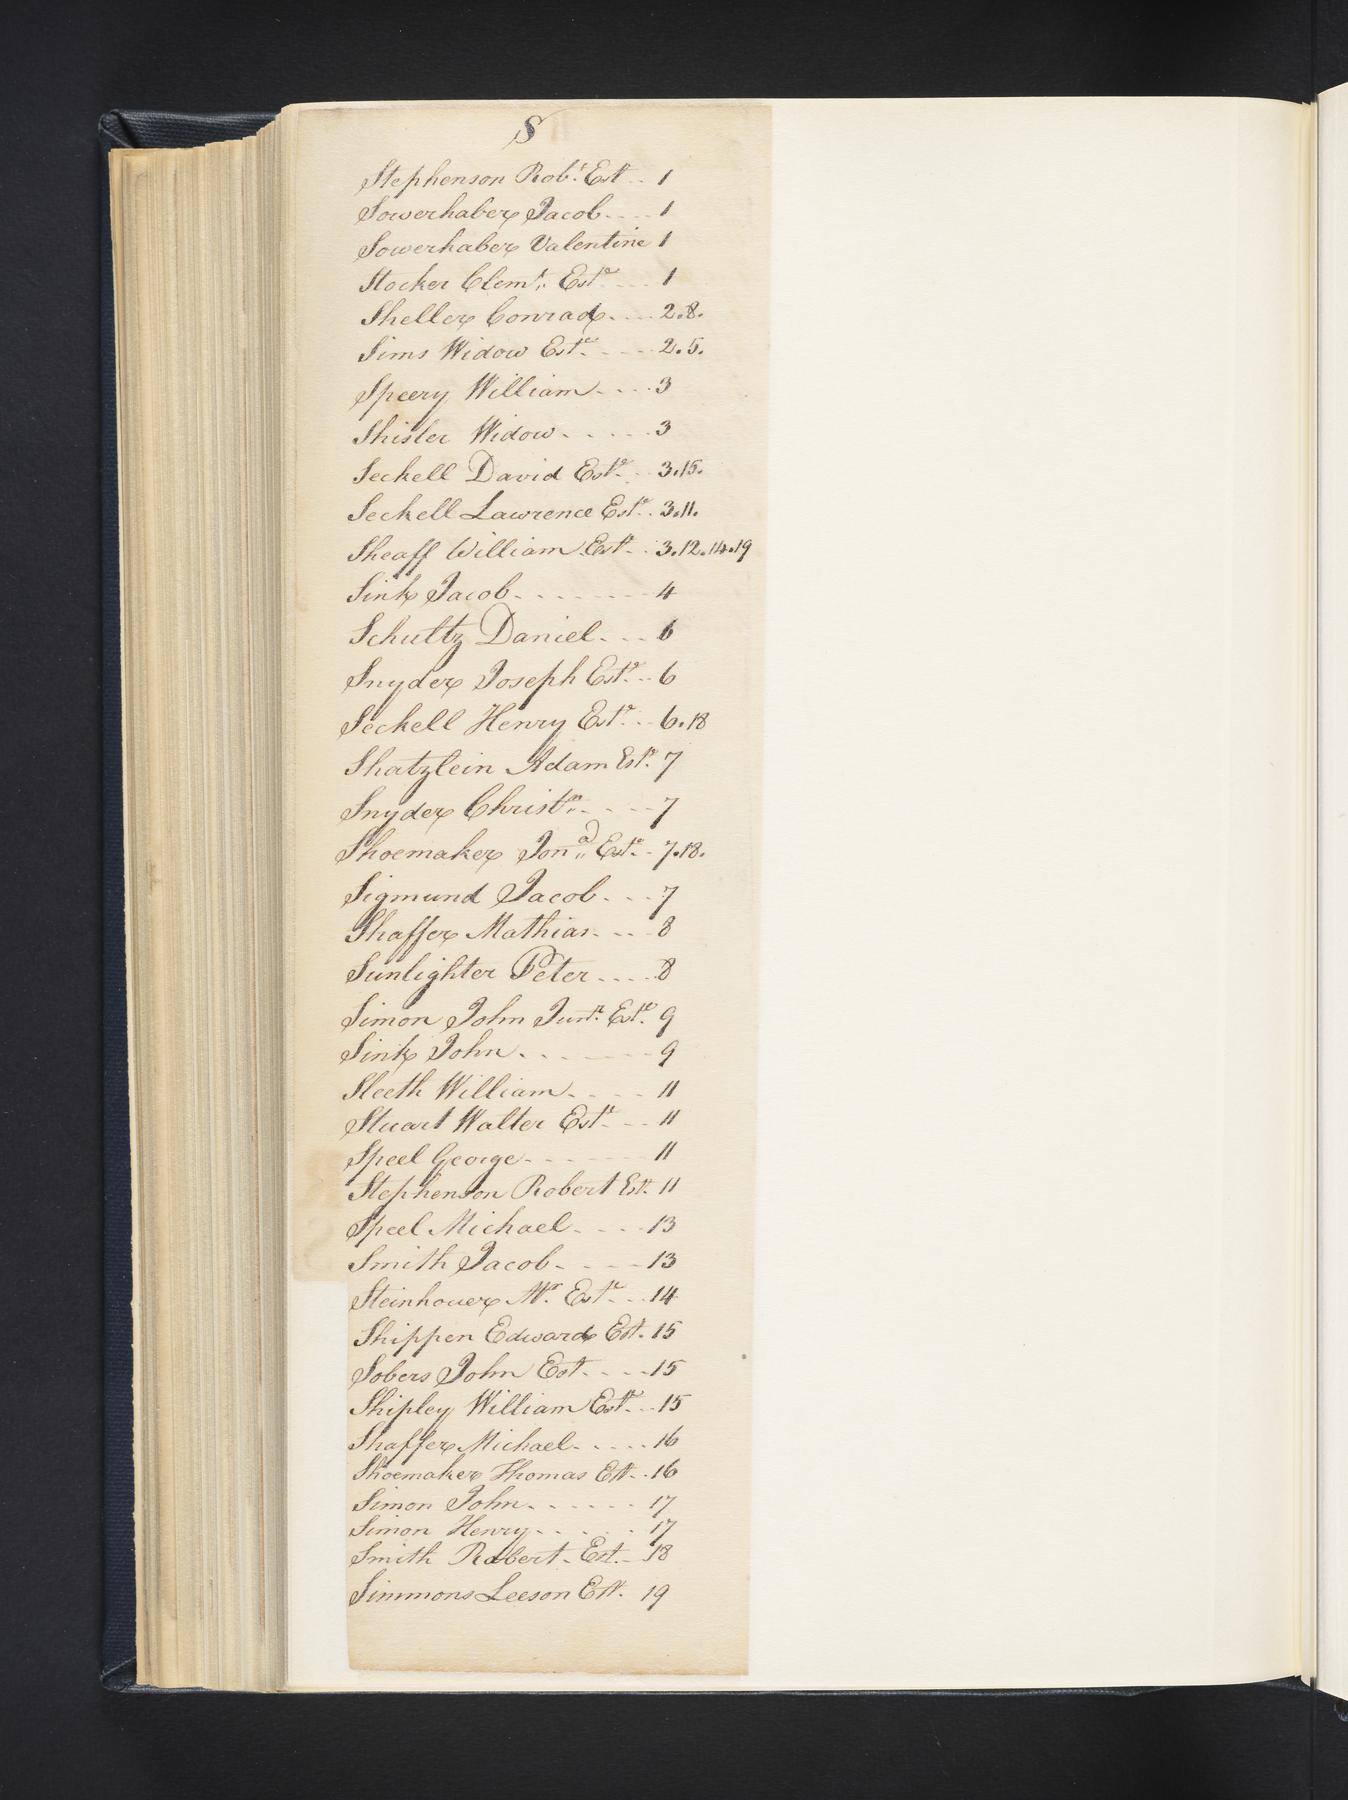 S
Stephenson Robt. Est .. 1
Sowerhaber Jacob .... 1
Sowerhaber Valentine 1
Stocker Clemt. Este .... 1
Sheller Conrad .... 2.8.
Sims Widow Este. .... 2.5.
Speery William .... 3
Shisler Widow ..... 3
Seckell David Este. .. 3.15.
Seckell Lawrence Este. . 3.11.
Sheaff William Este. .. 3.12.14.19
Sink Jacob ........ 4
Schultz Daniel ... 6
Snyder Joseph Este. .. 6
Seckell Henry Este. .. 6.18
Shatzlein Adam Este. 7
Snyder Christn. .... 7
Shoemaker Jona. Este. .. 7.18.
Sigmund Jacob ... 7
Shaffer Mathias .... 8
Sunlighter Peter .... 8
Simon John Junr. Este. 9
Sink John ....... 9
Sleeth William .... 11
Stuart Walter Este ... 11
Speel George ....... 11
Stephenson Robert Est. 11
Speel Michael .... 13
Smith Jacob ..... 13
Steinhouer Mr. Este ... 14
Shippen Edward Est. 15
Sobers John Est .... 15
Shipley William Este. .. 15
Shaffer Michael ..... 16
Shoemaker Thomas Est .. 16
Simon John ...... 17
Simon Henry ..... 17
Smith Robert . Est .. 18
Simmons Leeson Est. 19